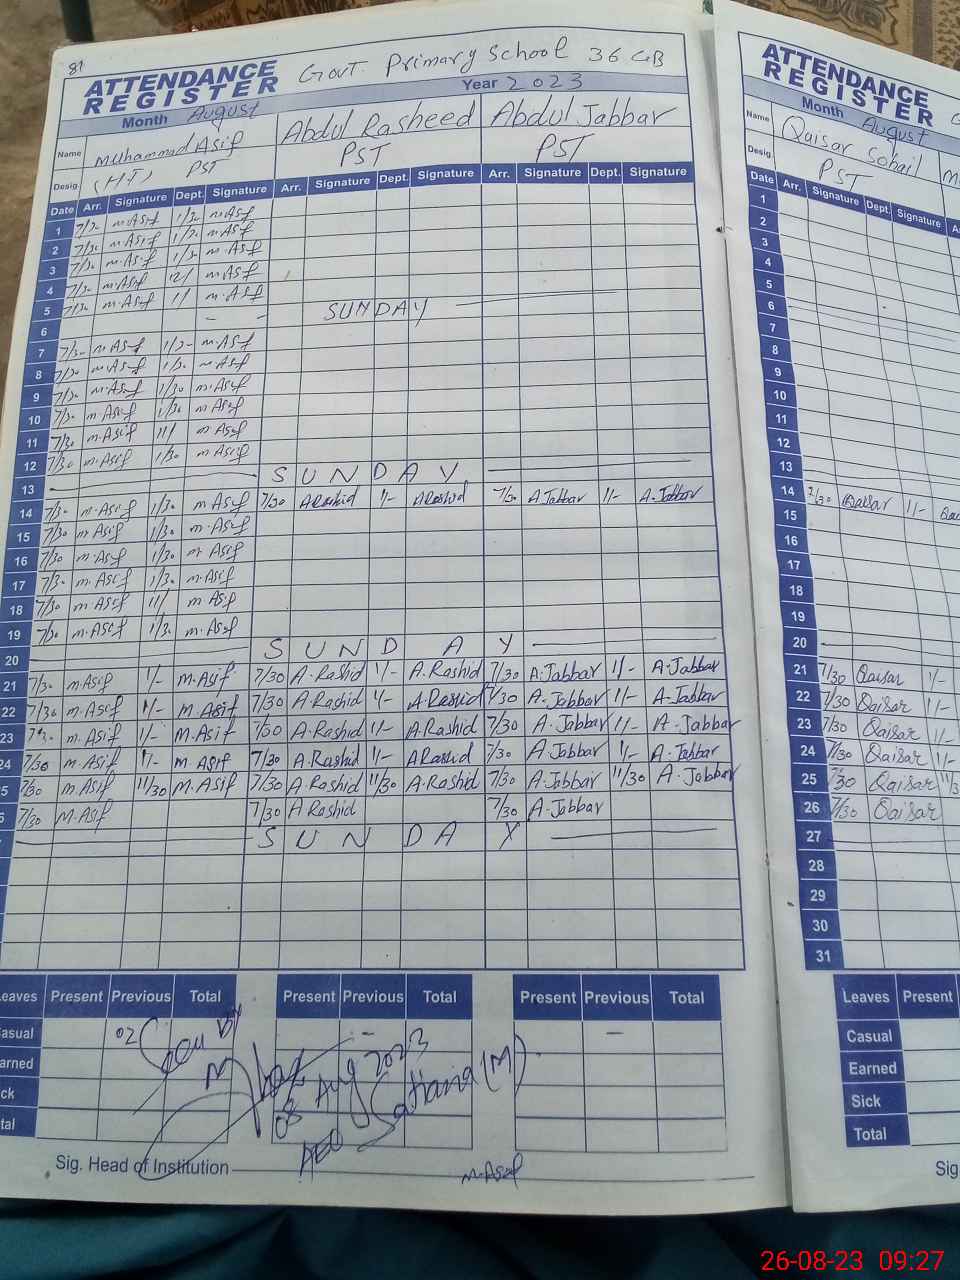 81
ATTENDANCE REGISTER
Govt. Primary School 36 GB
Month August Year 2023
Name Muhammad Asif Abdul Rasheed Abdul Jabbar
Desig. (HT) PST PST PST
Date Arr. Signature Dept. Signature Arr. Signature Dept. Signature Arr. Signature Dept. Signature
1 7/30 m.Asif 1/30 m.Asif
2 7/30 m.Asif 1/30 m.Asif
3 7/30 m.Asif 1/30 m.Asif
4 7/30 m.Asif 12/ m.Asif
5 7/30 m.Asif 11/ m.Asif
6 SUNDAY
7 7/30 m.Asif 1/30 m.Asif
8 7/30 m.Asif 1/30 m.Asif
9 7/30 m.Asif 1/30 m.Asif
10 7/30 m.Asif 1/30 m.Asif
11 7/30 m.Asif 11/ m.Asif
12 7/30 m.Asif 1/30 m.Asif
13 SUNDAY
14 7/30 m.Asif 1/30 m.Asif 7/30 A Rashid 1/- A Rashid 7/30 A.Jabbar 1/- A.Jabbar
15 7/30 m.Asif 1/30 m.Asif
16 7/30 m.Asif 1/30 m.Asif
17 7/30 m.Asif 1/30 m.Asif
18 7/30 m.Asif 11/ m.Asif
19 7/30 m.Asif 1/30 m.Asif
20 SUNDAY
21 7/30 m.Asif 1/- m.Asif 7/30 A.Rashid 1/- A.Rashid 7/30 A.Jabbar 1/- A.Jabbar
22 7/30 m.Asif 1/- m.Asif 7/30 A.Rashid 1/- A.Rashid 7/30 A.Jabbar 1/- A.Jabbar
23 7/30 m.Asif 1/- m.Asif 7/30 A.Rashid 1/- A.Rashid 7/30 A.Jabbar 1/- A.Jabbar
24 7/30 m.Asif 1/- m.Asif 7/30 A.Rashid 1/- A Rashid 7/30 A.Jabbar 1/- A.Jabbar
5 7/30 m.Asif 11/30 m.Asif 7/30 A.Rashid 11/30 A.Rashid 7/30 A.Jabbar 11/30 A.Jabbar
7/30 M.Asif 7/30 A Rashid 7/30 A.Jabbar
SUNDAY
Leaves Present Previous Total Present Previous Total Present Previous Total
asual 02 - -
arned
ck
tal
Seen By
08 Aug 2023
AEO Satiana (M)
Sig. Head of Institution m.Asif
ATTENDANCE REGISTER
Month August
Name Qaisar Sohail
Desig. PST
Date Arr. Signature Dept. Signature
1
2
3
4
5
6
7
8
9
10
11
12
13
14 7/30 Qaisar 1/-
15
16
17
18
19
20
21 7/30 Qaisar 1/-
22 7/30 Qaisar 1/-
23 7/30 Qaisar 1/-
24 7/30 Qaisar 1/-
25 7/30 Qaisar 11/3
26 7/30 Qaisar
27
28
29
30
31
Leaves Present
Casual
Earned
Sick
Total
Sig
26-08-23 09:27